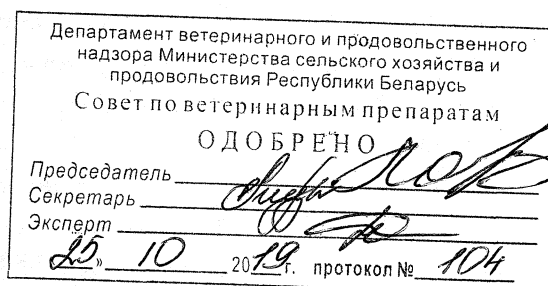 Департамент ветеринарного и продовольственного
надзора Министерства сельского хозяйства и
продовольствия Республики Беларусь
Совет по ветеринарным препаратам
ОДОБРЕНО
Председатель
Секретарь
Эксперт
25 » 10 2019 г. протокол № 104